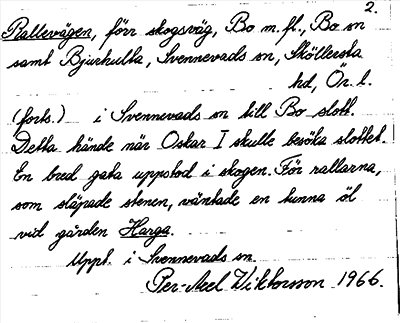 2.
Rallevägen, förr skogsväg, Bo m. fl., Bo sn
samt Bjurhulta, Svennevads sn, Sköllersta
hd, Ör. l.
(forts.) i Svennevads sn till Bo slott.
Detta hände när Oskar I skulle besöka slottet.
En bred gata uppstod i skogen. För rallarna,
som släpade stenen, väntade en tunna öl
vid gården Harga.
Uppt. i Svennevads sn.
Per-Axel Wiktorsson 1966.